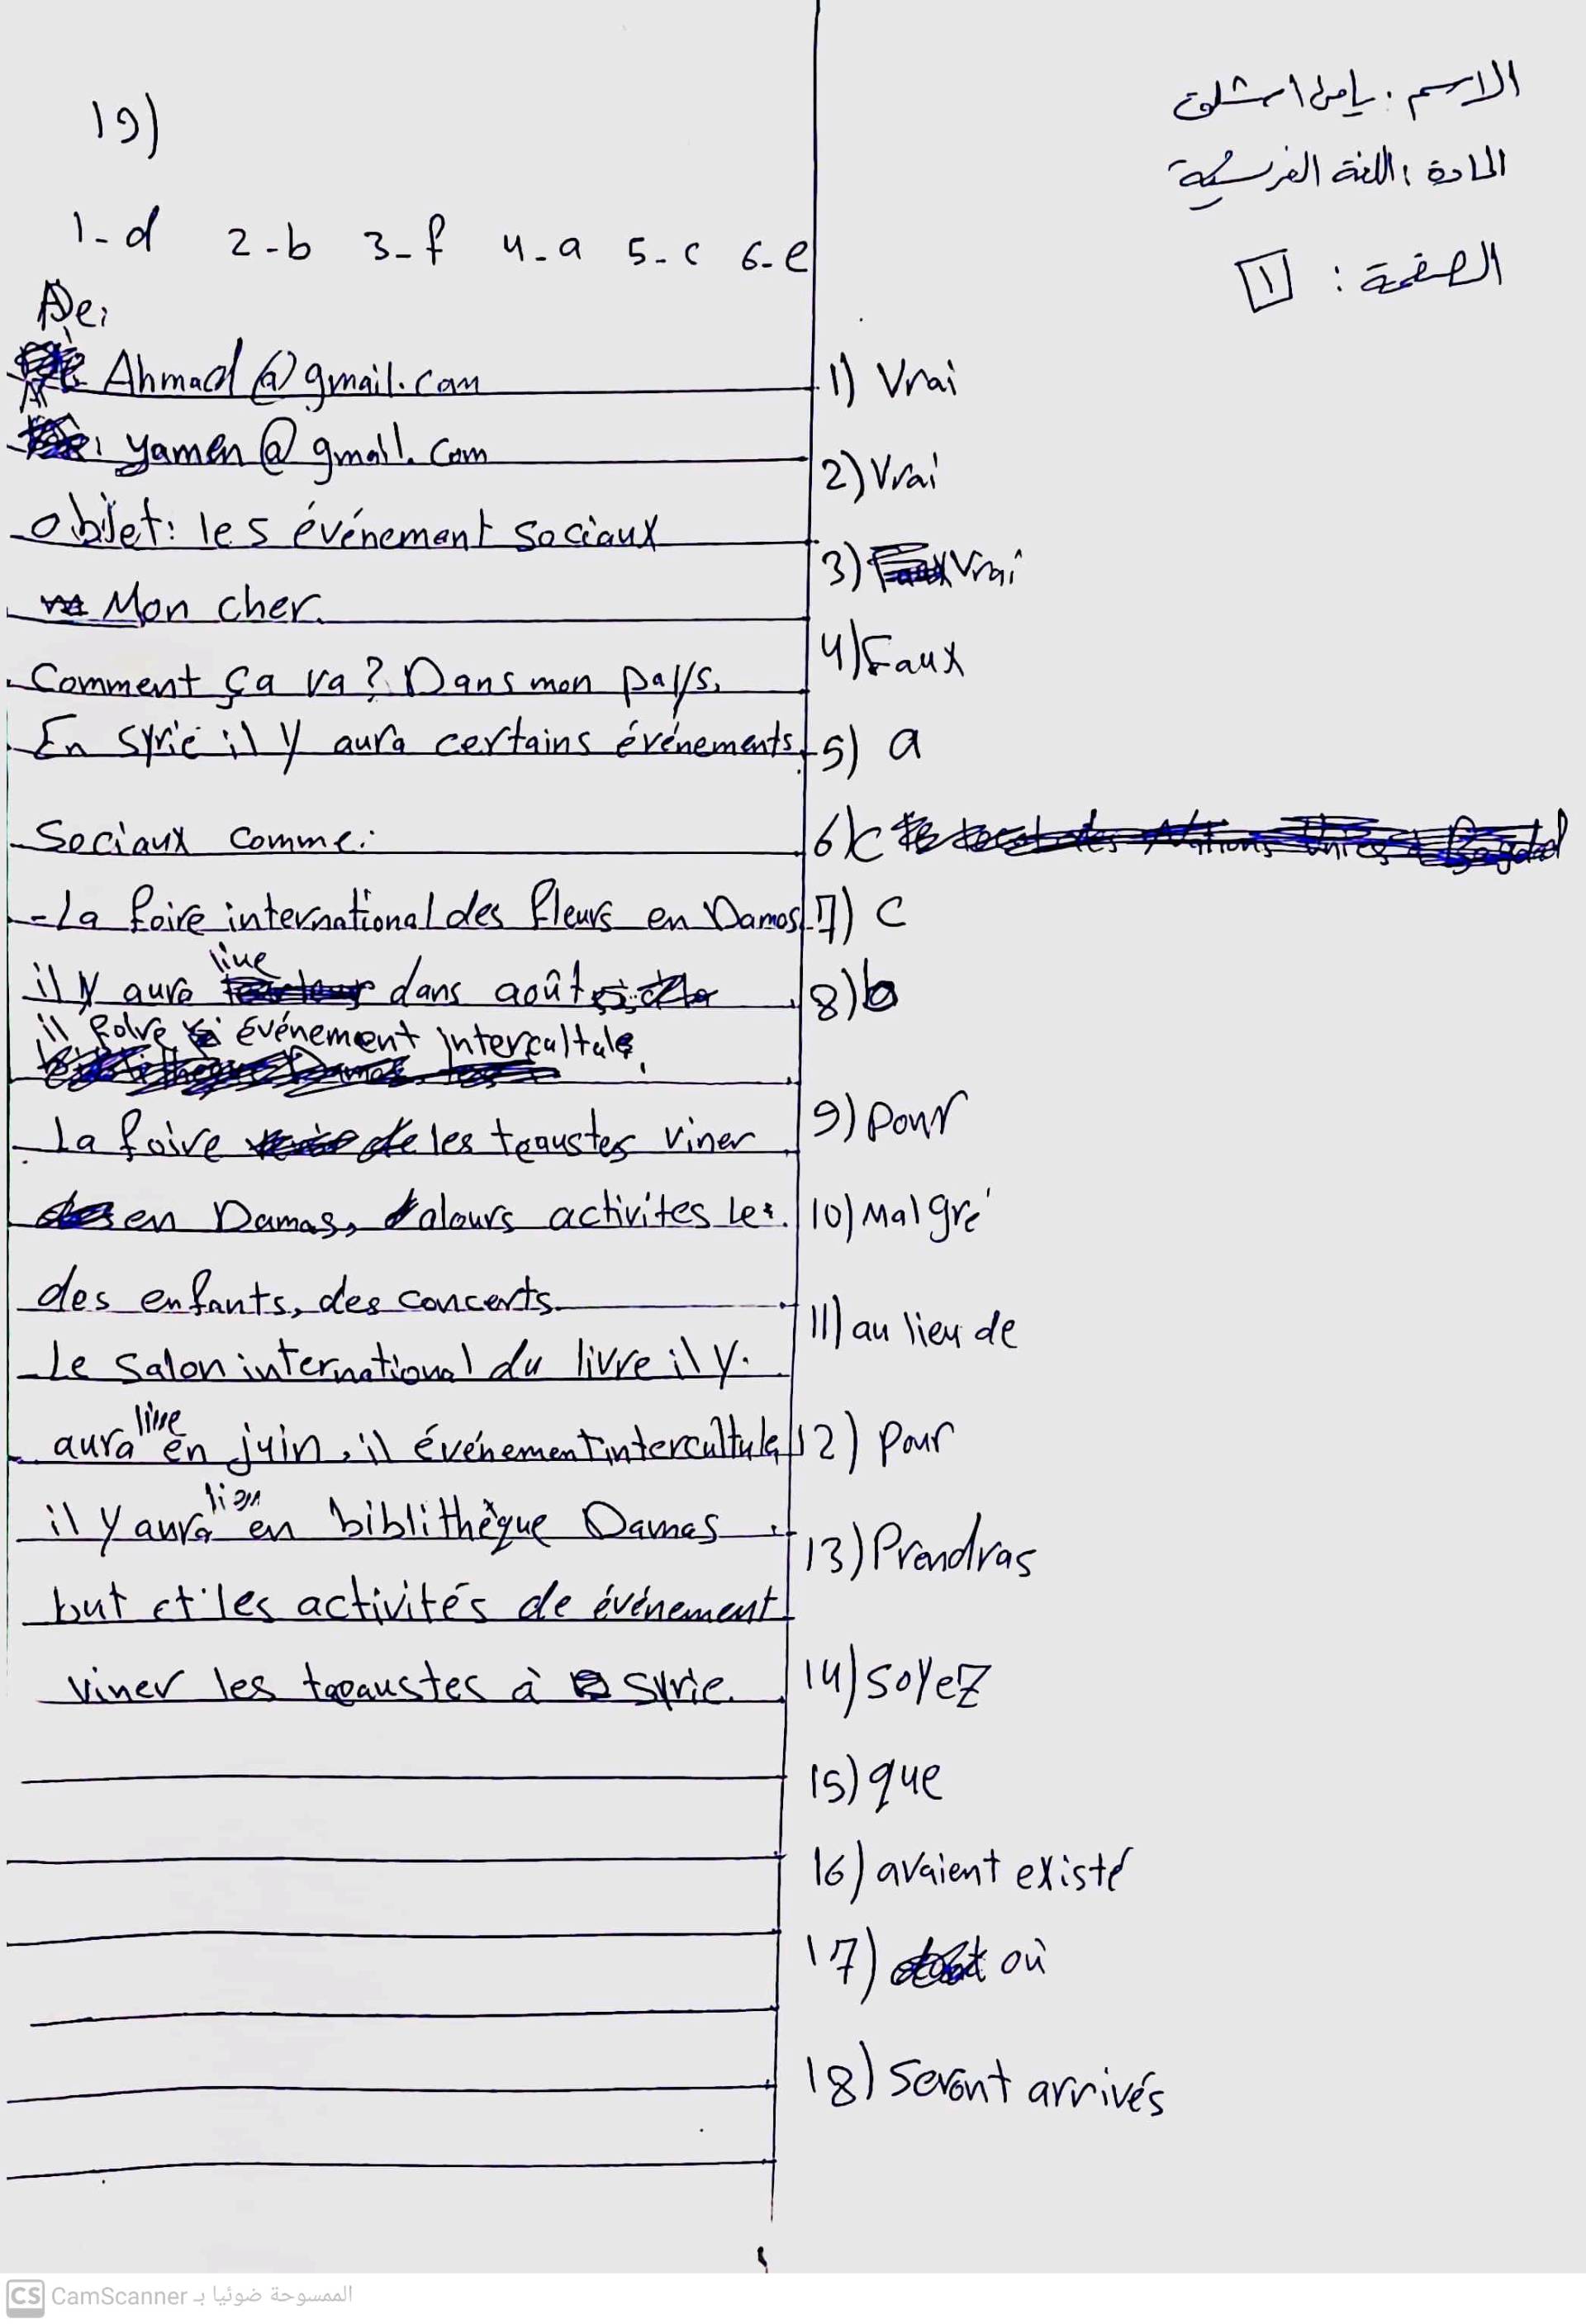 الاسم : يامن امشلوق
المادة : اللغة الفرنسية
الصفحة : ١
1) Vrai
2) Vrai
3) Vrai
4) Faux
5) a
6) c
7) c
8) b
9) pour
10) Malgré
11) au lieu de
12) pour
13) Prendras
14) soyez
15) que
16) avaient existé
17) où
18) Seront arrivés
19)
1-d 2-b 3-f 4-a 5-c 6-e
De:
Ahmad@gmail.com
yamen@gmail.com
objet: les événement sociaux
Mon cher.
Comment ça va? Dans mon pays.
En syrie il y aura certains événements
Sociaux comme:
-La foire international des fleurs en Damas.
il y aura liue dans août
il foire événement intercultule.
La foire les teaustes viner
en Damas, alours activites les
des enfants, des concerts.
-Le salon international du livre il y
aura liue en juin, il événement intercultule
il y aura lieu en biblithèque Damas
but et les activités de événement
viner les toeaustes à syrie.
CS CamScanner الممسوحة ضوئيا بـ